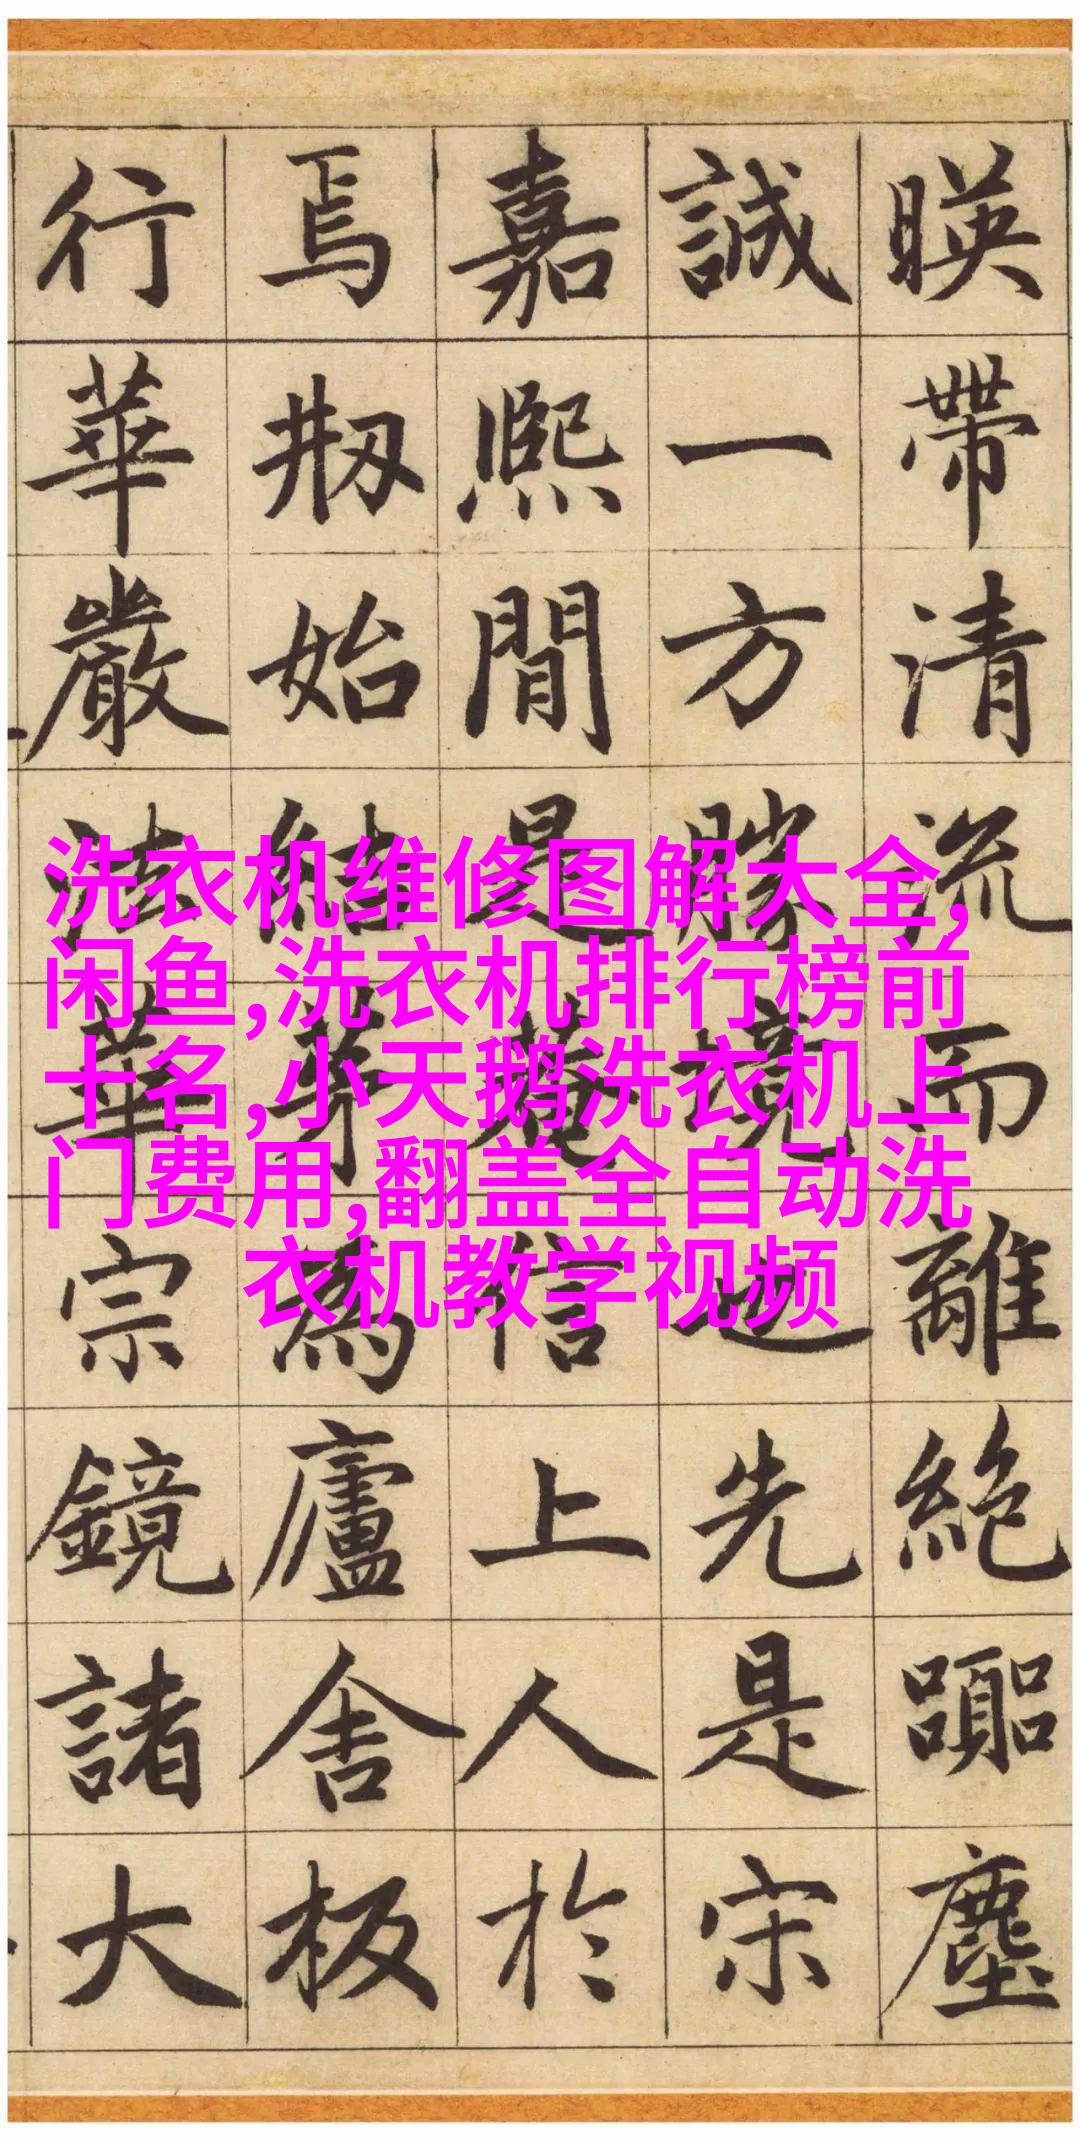 暎帶清流而離絶囂塵
誠一方勝境也先是宋
嘉熙間是菴信上人於
焉刱始結茅為廬舍板
行華嚴法華宗鏡諸大
洗衣机维修图解大全,
闲鱼,洗衣机排行榜前
十名,小天鹅洗衣机上
门费用,翻盖全自动洗
衣机教学视频